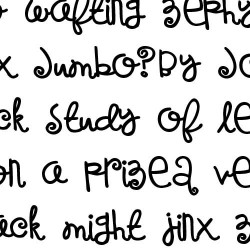 wafting zephy
x Jumbo?By Jo
ck study of le
on a prizea ve
ack might jinx z